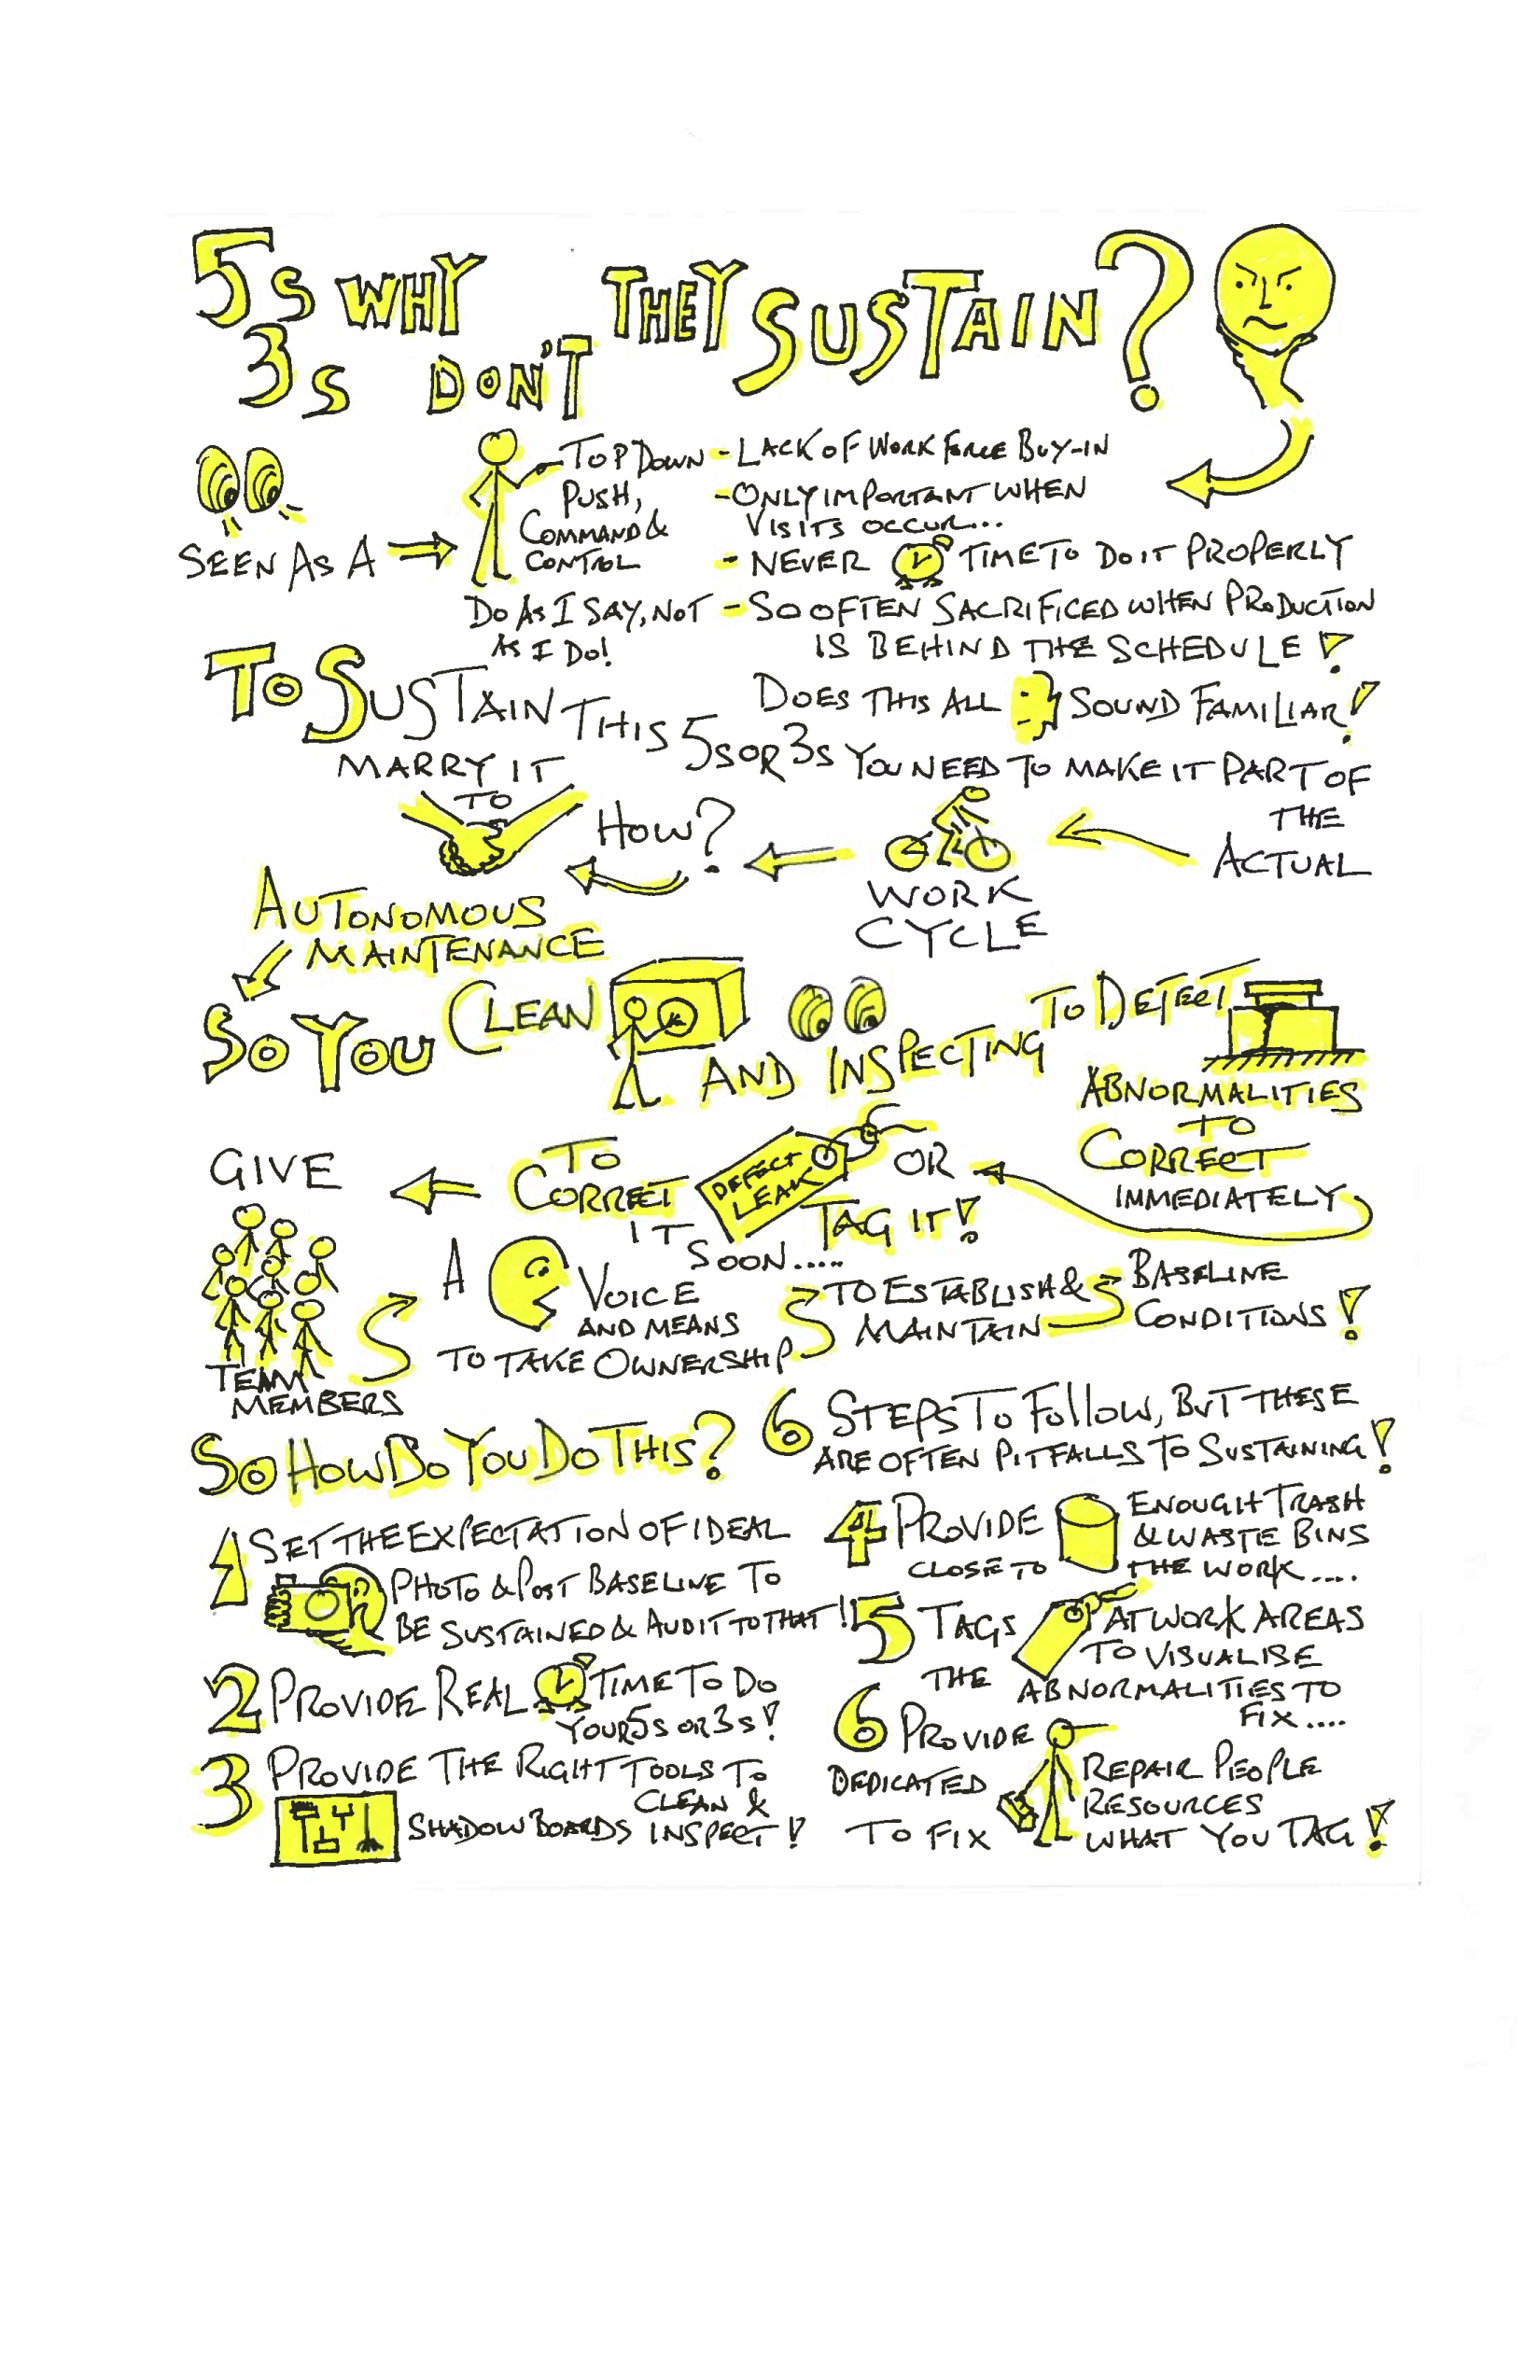 5S WHY THEY SUSTAIN?
3S DON'T
TOP DOWN - LACK OF WORK FORCE BUY-IN
PUSH, - ONLY IMPORTANT WHEN
COMMAND & VISITS OCCUR...
SEEN AS A CONTROL - NEVER TIME TO DO IT PROPERLY
DO AS I SAY, NOT - SO OFTEN SACRIFICED WHEN PRODUCTION
AS I DO! IS BEHIND THE SCHEDULE!
DOES THIS ALL SOUND FAMILIAR!
TO SUSTAIN THIS 5S OR 3S YOU NEED TO MAKE IT PART OF
THE
ACTUAL
WORK
CYCLE
HOW?
MARRY IT
TO
AUTONOMOUS
MAINTENANCE
SO YOU CLEAN AND INSPECTING TO DETECT
ABNORMALITIES
TO
CORRECT
IMMEDIATELY
OR
TAG IT!
DEFECT
LEAK
TO
CORRECT
IT
SOON.....
GIVE
TEAM
MEMBERS
A VOICE
AND MEANS
TO TAKE OWNERSHIP
TO ESTABLISH &
MAINTAIN
BASELINE
CONDITIONS!
SO HOW DO YOU DO THIS? 6 STEPS TO FOLLOW, BUT THESE
ARE OFTEN PITFALLS TO SUSTAINING!
1 SET THE EXPECTATION OF IDEAL
PHOTO & POST BASELINE TO
BE SUSTAINED & AUDIT TO THAT!
2 PROVIDE REAL TIME TO DO
YOUR 5S OR 3S!
3 PROVIDE THE RIGHT TOOLS TO
CLEAN &
SHADOW BOARDS INSPECT!
4 PROVIDE ENOUGH TRASH
& WASTE BINS
CLOSE TO THE WORK....
5 TAGS AT WORK AREAS
TO VISUALISE
THE ABNORMALITIES TO
FIX....
6 PROVIDE
DEDICATED REPAIR PEOPLE
RESOURCES
TO FIX WHAT YOU TAG!